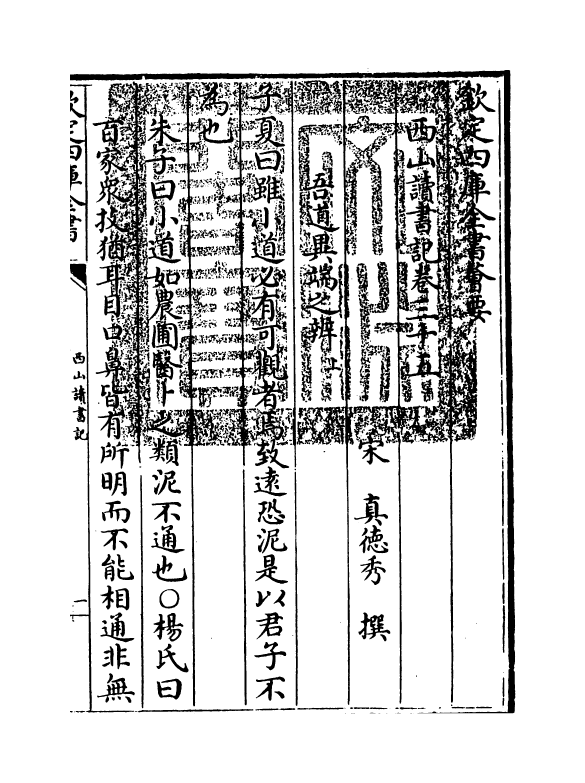 欽定四庫全書薈要
西山讀書記卷三十五
宋 真德秀 撰
吾道異端之辨上
子夏曰雖小道必有可觀者焉致逺恐泥是以君子不
為也
朱子曰小道如農圃醫卜之類泥不通也○楊氏曰
百家衆技猶耳目口鼻皆有所明而不能相通非無
欽定四庫全書
西山讀書記
一